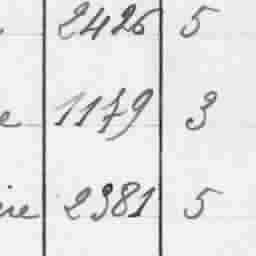 2426 5
e 1179 3
ire 2381 5